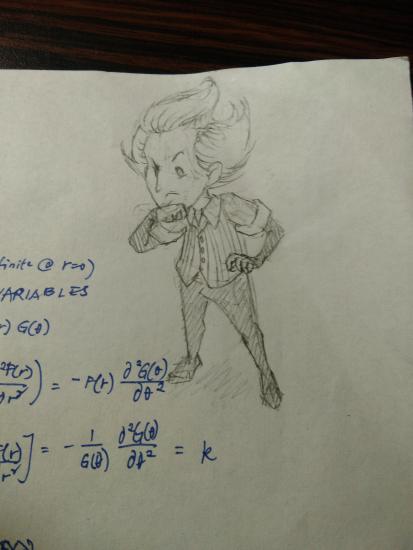 finite @ r=0)
VARIABLES
r) G(θ)
²F(r)/∂r²) = -F(r) ∂²G(θ)/∂θ²
F(r)/r²] = - 1/G(θ) ∂²G(θ)/∂θ² = k